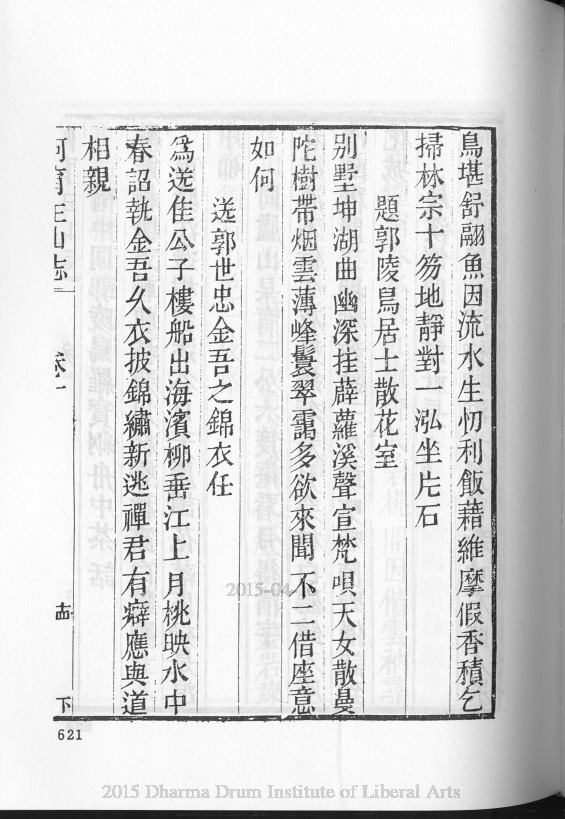 鳥堪舒翮魚因流水生忉利飯藉維摩假香積乞
掃林宗十笏地靜對一泓坐片石
題郭陵舃居士散花室
別墅坤湖曲幽深挂薜蘿溪聲宣梵唄天女散曼
陀樹帶烟雲薄峰鬟翠靄多欲來聞不二借座意
如何
送郭世忠金吾之錦衣任
為送佳公子樓船出海濱柳垂江上月桃映水中
春詔執金吾久衣披錦繡新逃禪君有癖應與道
相親
阿育王山志
卷十
下
621
2015-04
2015 Dharma Drum Institute of Liberal Arts